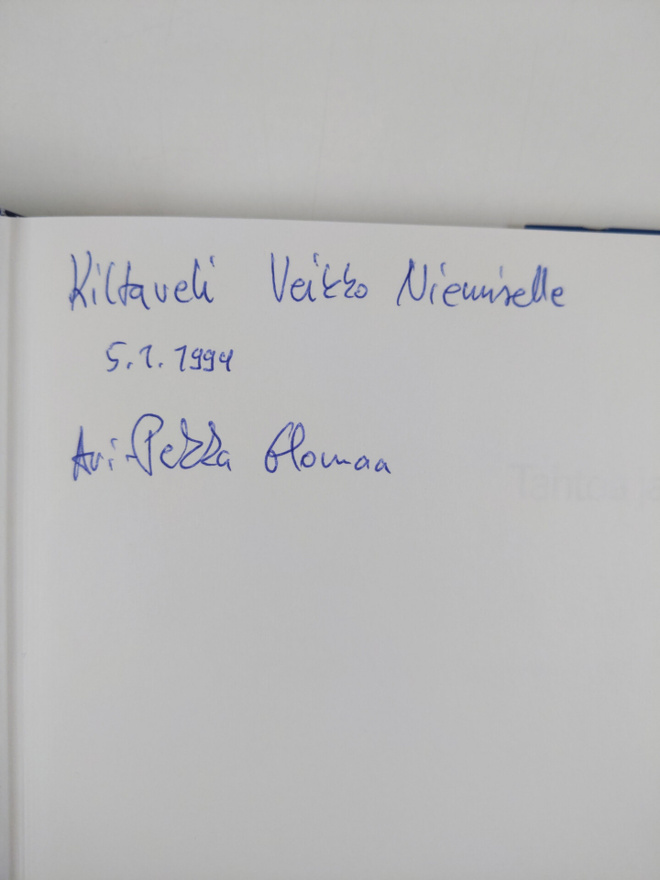 Kiltaveli Veikko Niemiselle
5.1.1994
Ari-Pekka Elomaa
Tahtoa ja